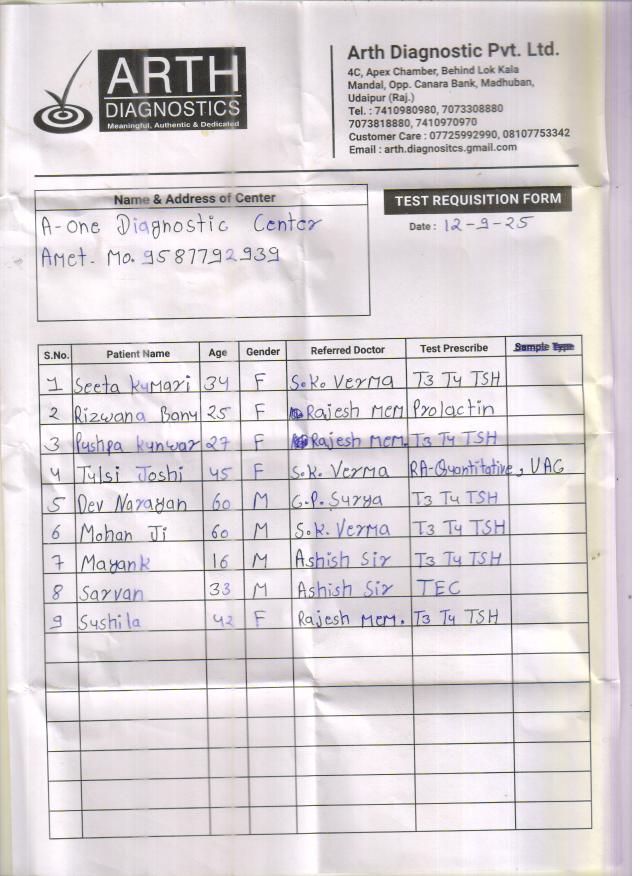 ARTH
DIAGNOSTICS
Meaningful, Authentic & Dedicated
Arth Diagnostic Pvt. Ltd.
4C, Apex Chamber, Behind Lok Kala
Mandal, Opp. Canara Bank, Madhuban,
Udaipur (Raj.)
Tel. : 7410980980, 7073308880
7073818880, 7410970970
Customer Care : 07725992990, 08107753342
Email : arth.diagnositcs.gmail.com
Name & Address of Center
A-One Diagnostic Center
Amet. Mo. 9587792939
TEST REQUISITION FORM
Date : 12-9-25
S.No. Patient Name Age Gender Referred Doctor Test Prescribe Sample Type
1 Seeta Kumari 34 F S.K. Verma T3 T4 TSH
2 Rizwana Banu 25 F Rajesh Mem Prolactin
3 Pushpa Kunwar 27 F Rajesh Mem. T3 T4 TSH
4 Tulsi Joshi 45 F S.K. Verma RA-Quantitative, UAG
5 Dev Narayan 60 M G.P. Surya T3 T4 TSH
6 Mohan Ji 60 M S.K. Verma T3 T4 TSH
7 Mayank 16 M Ashish Sir T3 T4 TSH
8 Sarvan 33 M Ashish Sir TEC
9 Sushila 42 F Rajesh Mem. T3 T4 TSH